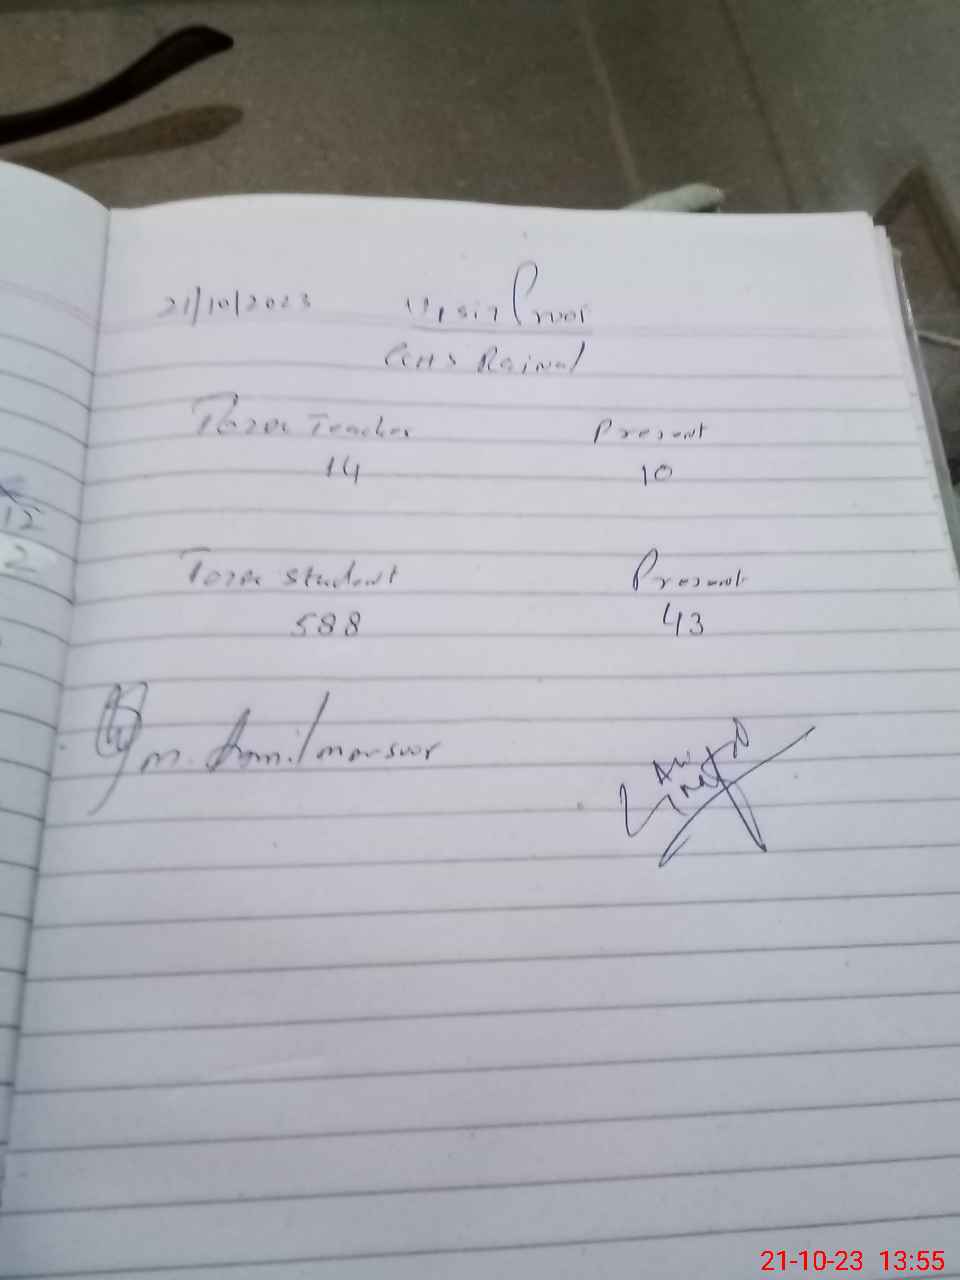 21/10/2023 Visit Proof
GHS Rainal
Total Teacher Present
14 10
Total Student Present
588 43
m. Jamil mansoor
12
2
21-10-23 13:55